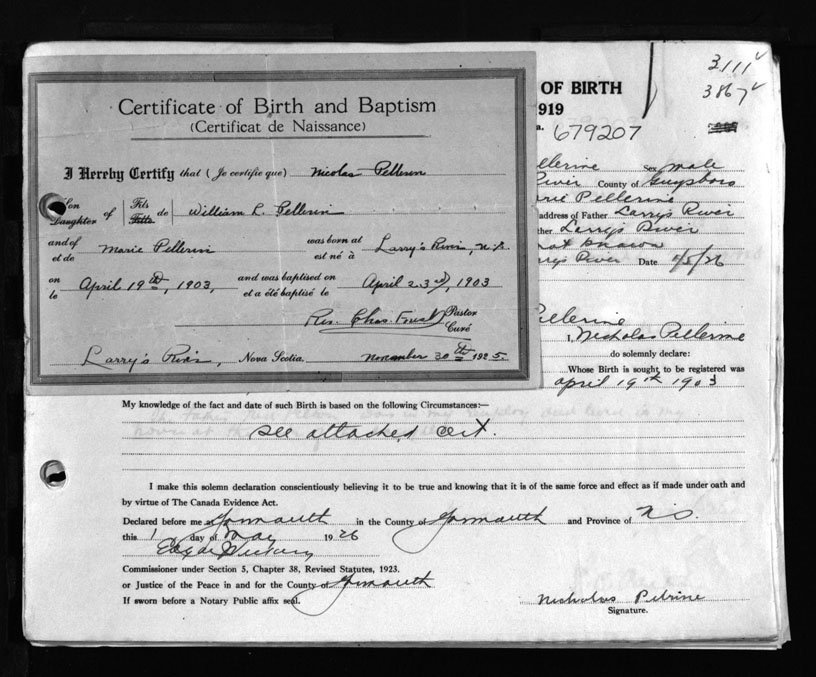 Certificate of Birth and Baptism
(Certificat de Naissance)
I Hereby Certify that (Je certifie que) Nicolas Pellerin
Son Daughter of Fils Fille de William L. Pellerin
and of et de Marie Pellerin was born at est né à Larry's River, N.S.
on le April 19th, 1903, and was baptised on et a été baptisé le April 23rd, 1903
Rev. Chas. Pastor Curé
Larry's River, Nova Scotia. November 30th 1925.
3111
3867
OF BIRTH
919
679207
ellerine Sex male
River County of Guysboro
arie Pellerine
address of Father Larry's River
ther Larry's River
not known
rry's River Date 1/5/26
Pellerine
I, Nicholas Pellerine
do solemnly declare:
Whose Birth is sought to be registered was
April 19th 1903
My knowledge of the fact and date of such Birth is based on the following Circumstances:—
see attached cert.
I make this solemn declaration conscientiously believing it to be true and knowing that it is of the same force and effect as if made under oath and
by virtue of The Canada Evidence Act.
Declared before me at Yarmouth in the County of Yarmouth and Province of N.S.
this 1 day of May 1926
Commissioner under Section 5, Chapter 38, Revised Statutes, 1923.
or Justice of the Peace in and for the County of Yarmouth
If sworn before a Notary Public affix seal.
Nicholas Pelrine
Signature.